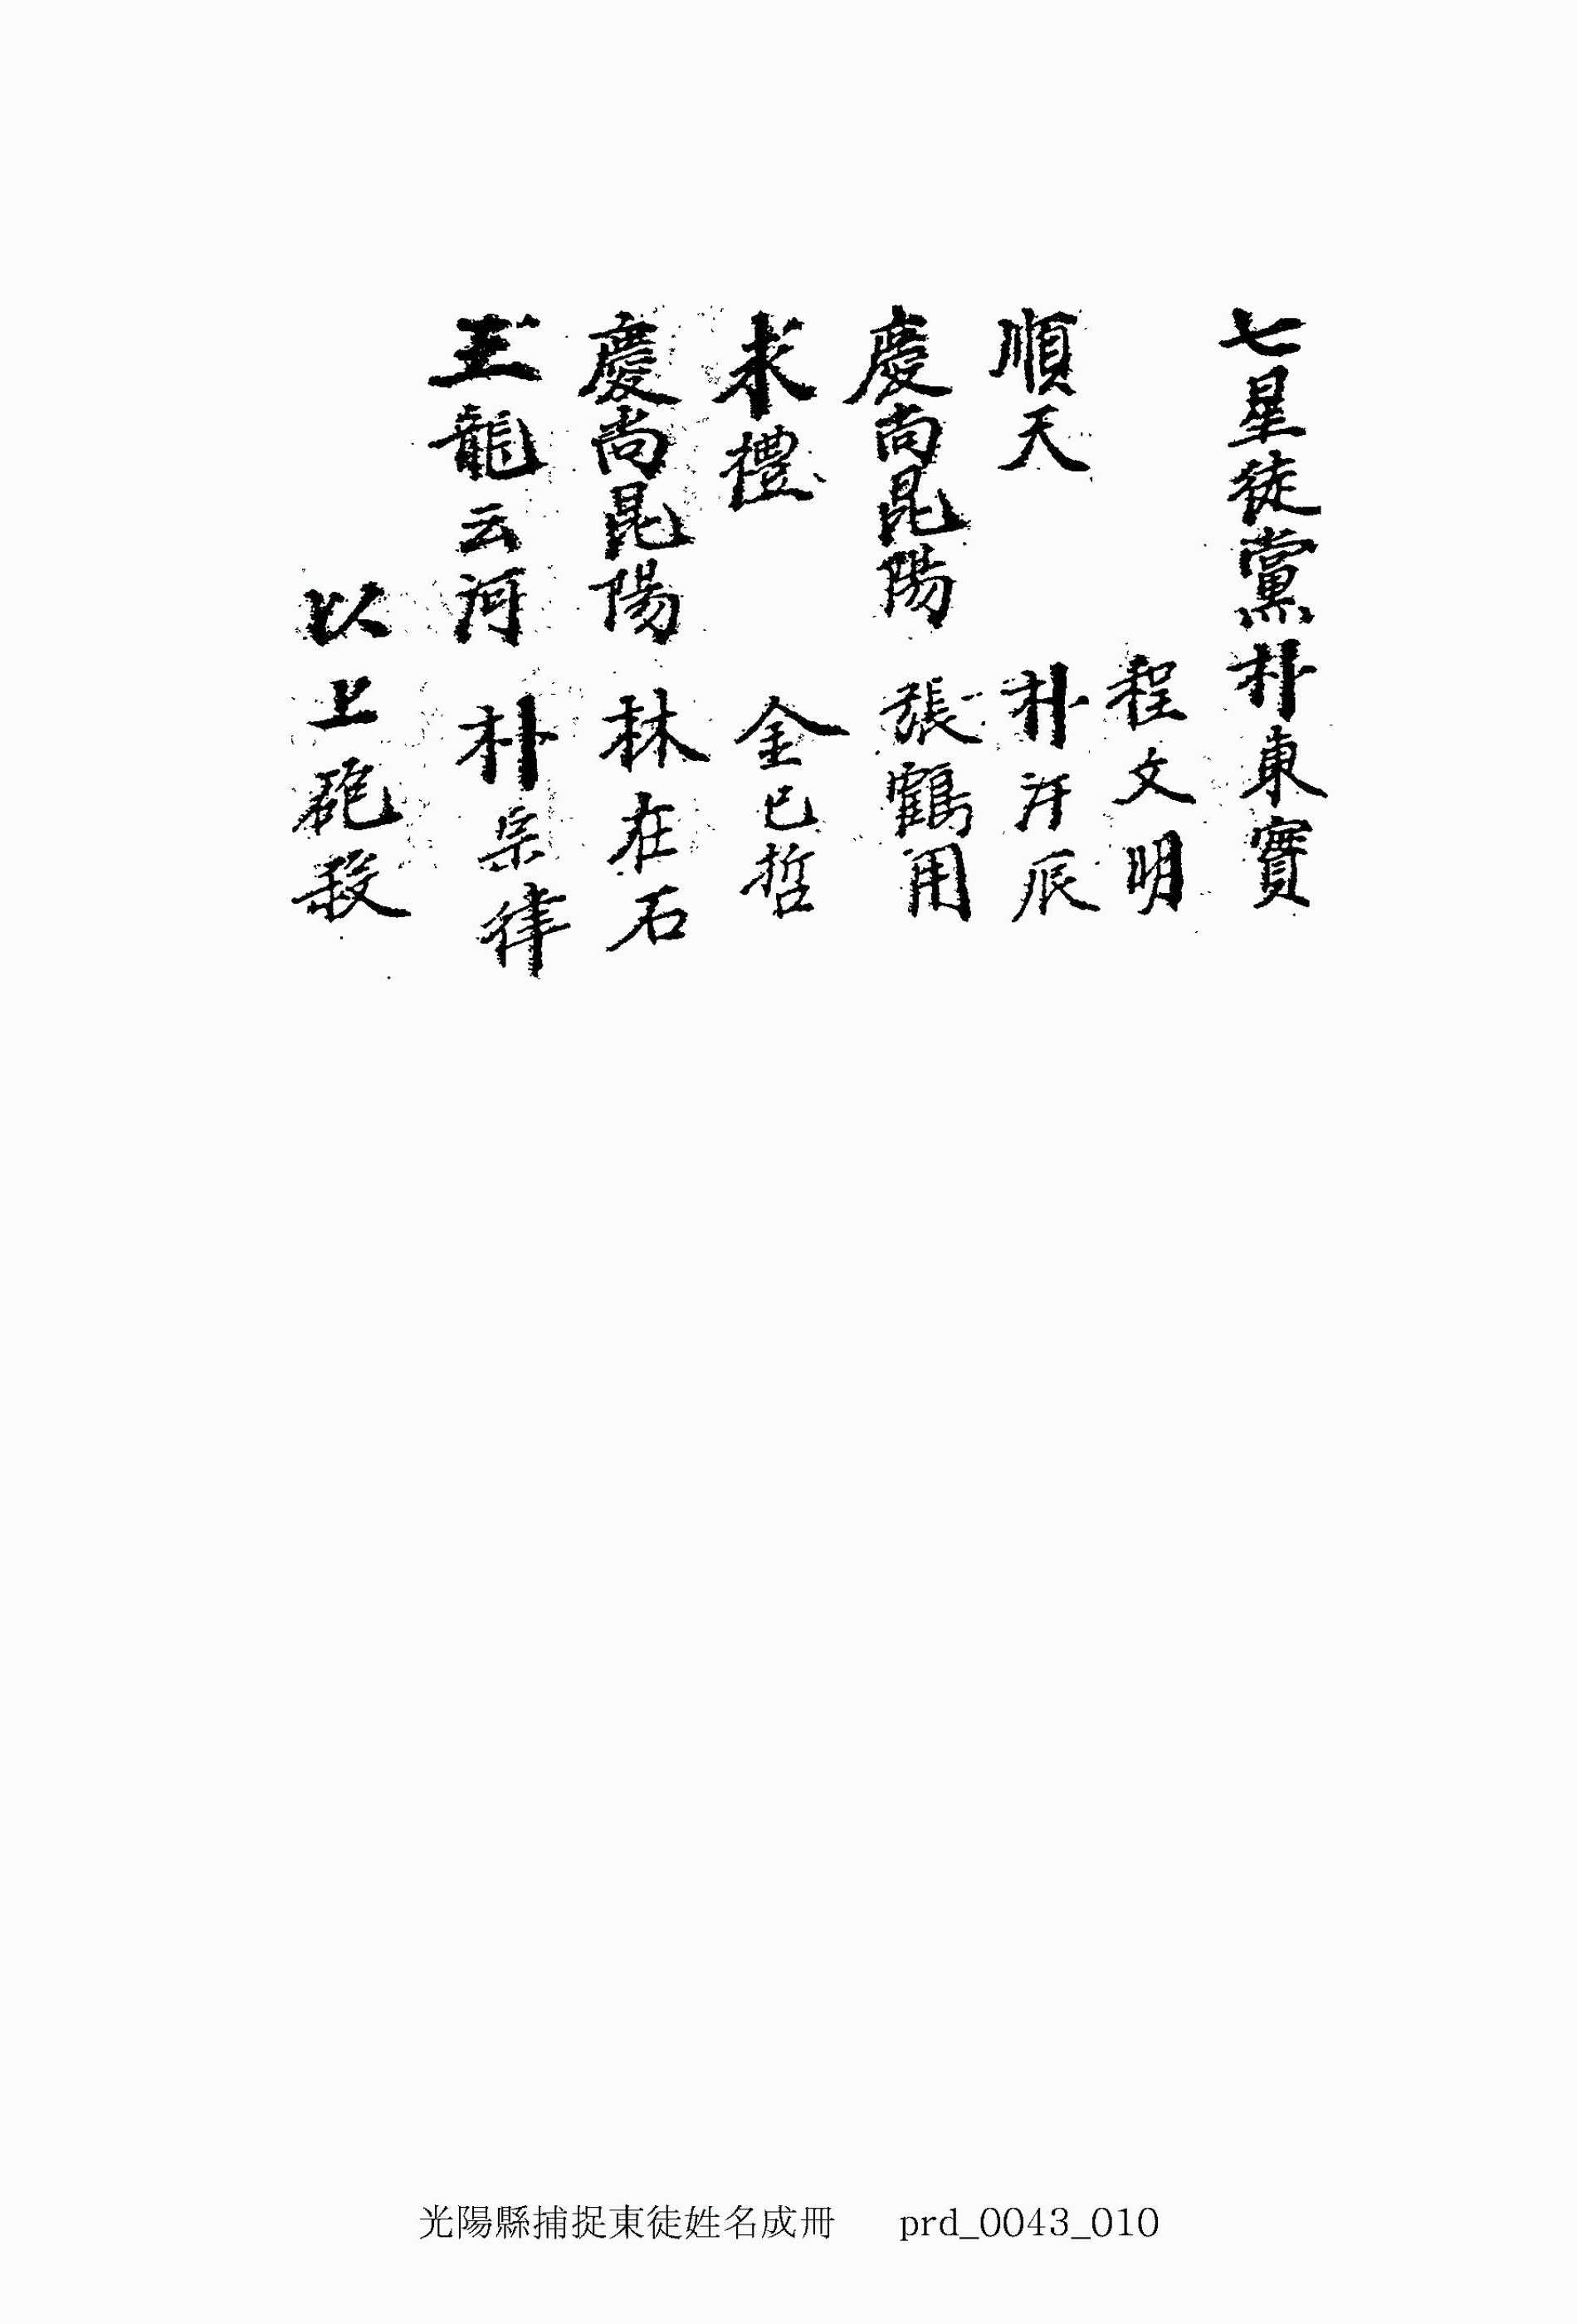 七星徒黨朴東寶
程文明
順天 朴汗辰
慶尚昆陽 張鶴用
求禮 金已哲
慶尚昆陽 林在石
玉龍云河 朴宗律
以上砲殺
光陽縣捕捉東徒姓名成冊 prd_0043_010